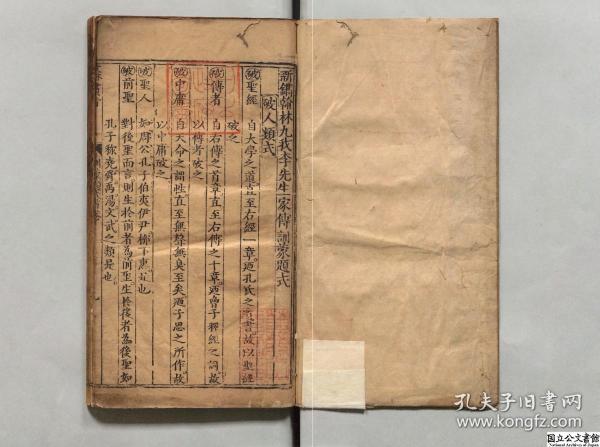 新鐫翰林九我李先生家傳訓蒙題式
破人類式
破聖經 自大學之道直至右經一章迺孔氏之書故以聖經
破之
破傳者 自右傳之首章直至右傳之十章迺曾子釋經之詞故
以傳者破之
破中庸 自天命之謂性直至無聲無臭至矣迺子思之所作故
以中庸破之
破聖人 如周公孔子伯夷伊尹柳下惠是也
破前聖 對後聖而言則生於前者為前聖生於後者為後聖如
孔子称堯舜禹湯文武之類是也
孔夫子旧书网
kongfz.com
国立公文書館
National Archives of Japan